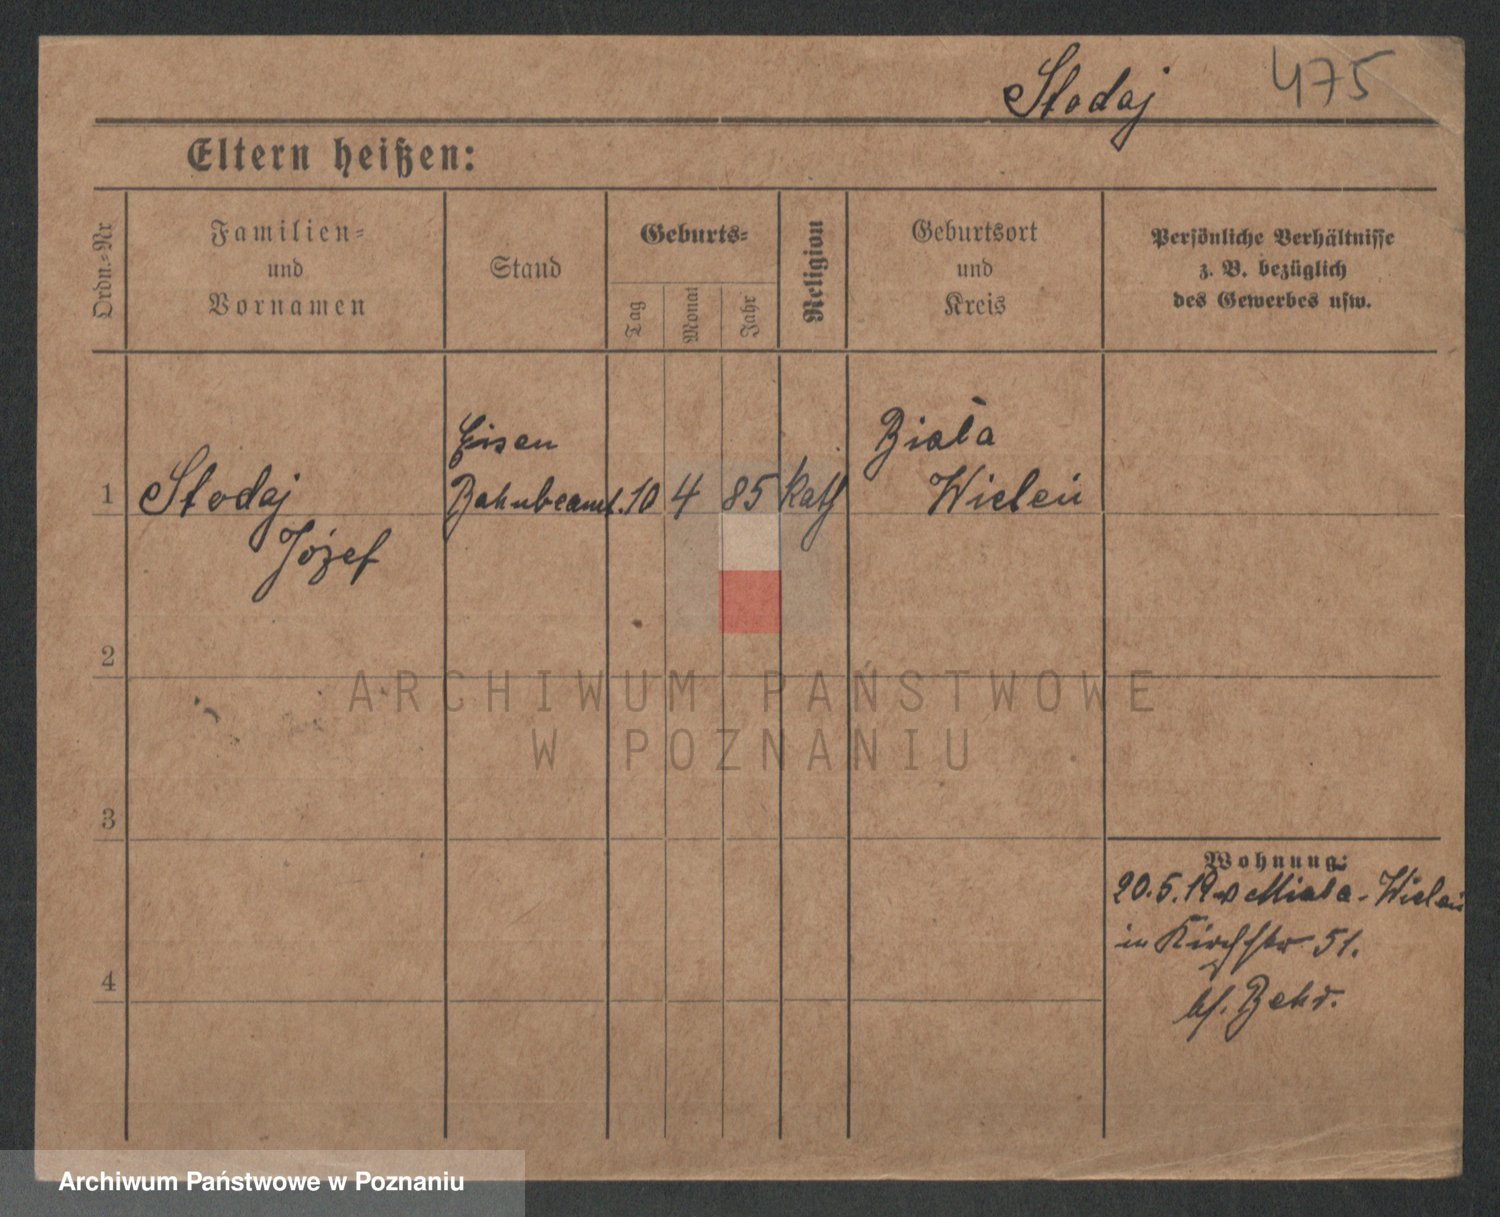 Słodaj 475
Eltern heißen:
Ordn.-Nr
Familien-
und
Vornamen
Stand
Geburts-
Tag
Monat
Jahr
Religion
Geburtsort
und
Kreis
Persönliche Verhältnisse
z. B. bezüglich
des Gewerbes usw.
1
Słodaj
Józef
Eisen
Bahnbeamt.
10 4 85 kath
Biała
Wieleń
2
3
4
Wohnung:
20.5.19 v Miała-Wieleń
in Kirchstr 51.
bf. Behr.
ARCHIWUM PAŃSTWOWE
W POZNANIU
Archiwum Państwowe w Poznaniu